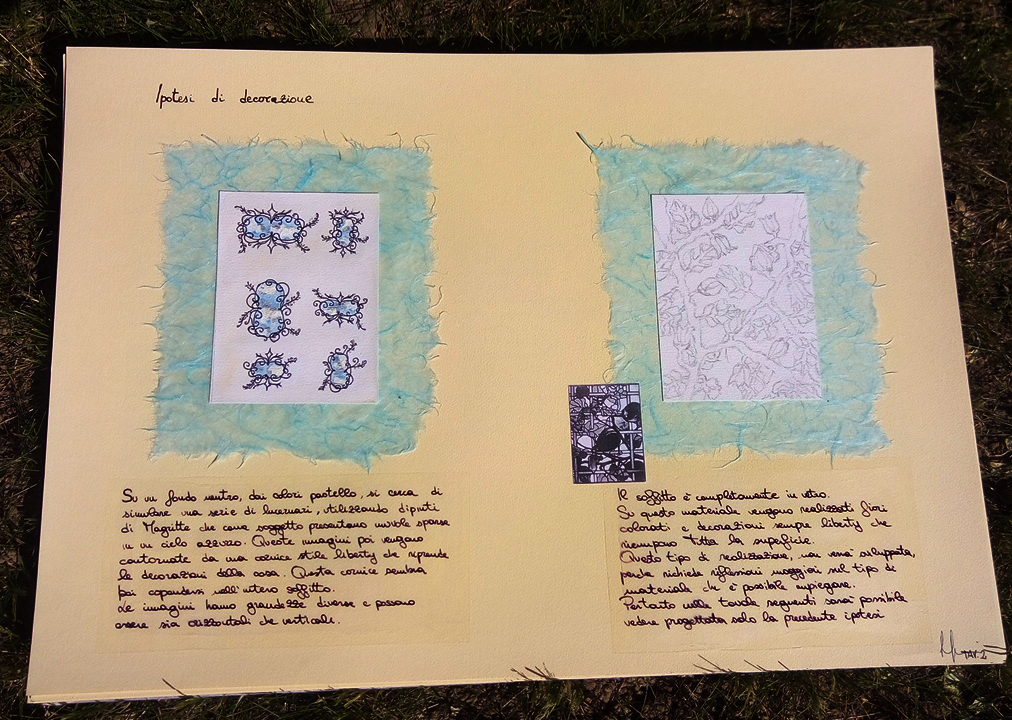 Ipotesi di decorazione
Su un fondo neutro, dai colori pastello, si cerca di
simulare una serie di lucernari, utilizzando dipinti
di Magritte che come soggetto presentano nuvole sparse
in un cielo azzurro. Queste immagini poi vengono
contornate da una cornice stile liberty che riprende
le decorazioni della casa. Questa cornice sembra
poi espandersi nell'intero soffitto.
Le immagini hanno grandezze diverse e possono
essere sia orizzontali che verticali.
Il soffitto è completamente in vetro.
Su questo materiale vengono realizzati fiori
colorati e decorazioni sempre liberty che
riempono tutta la superficie.
Questo tipo di realizzazione, non verrà sviluppata,
perché richiede riflessioni maggiori sul tipo di
materiale che è possibile impiegare.
Pertanto nelle tavole seguenti sarà possibile
vedere progettata solo la precedente ipotesi
TAV. 2